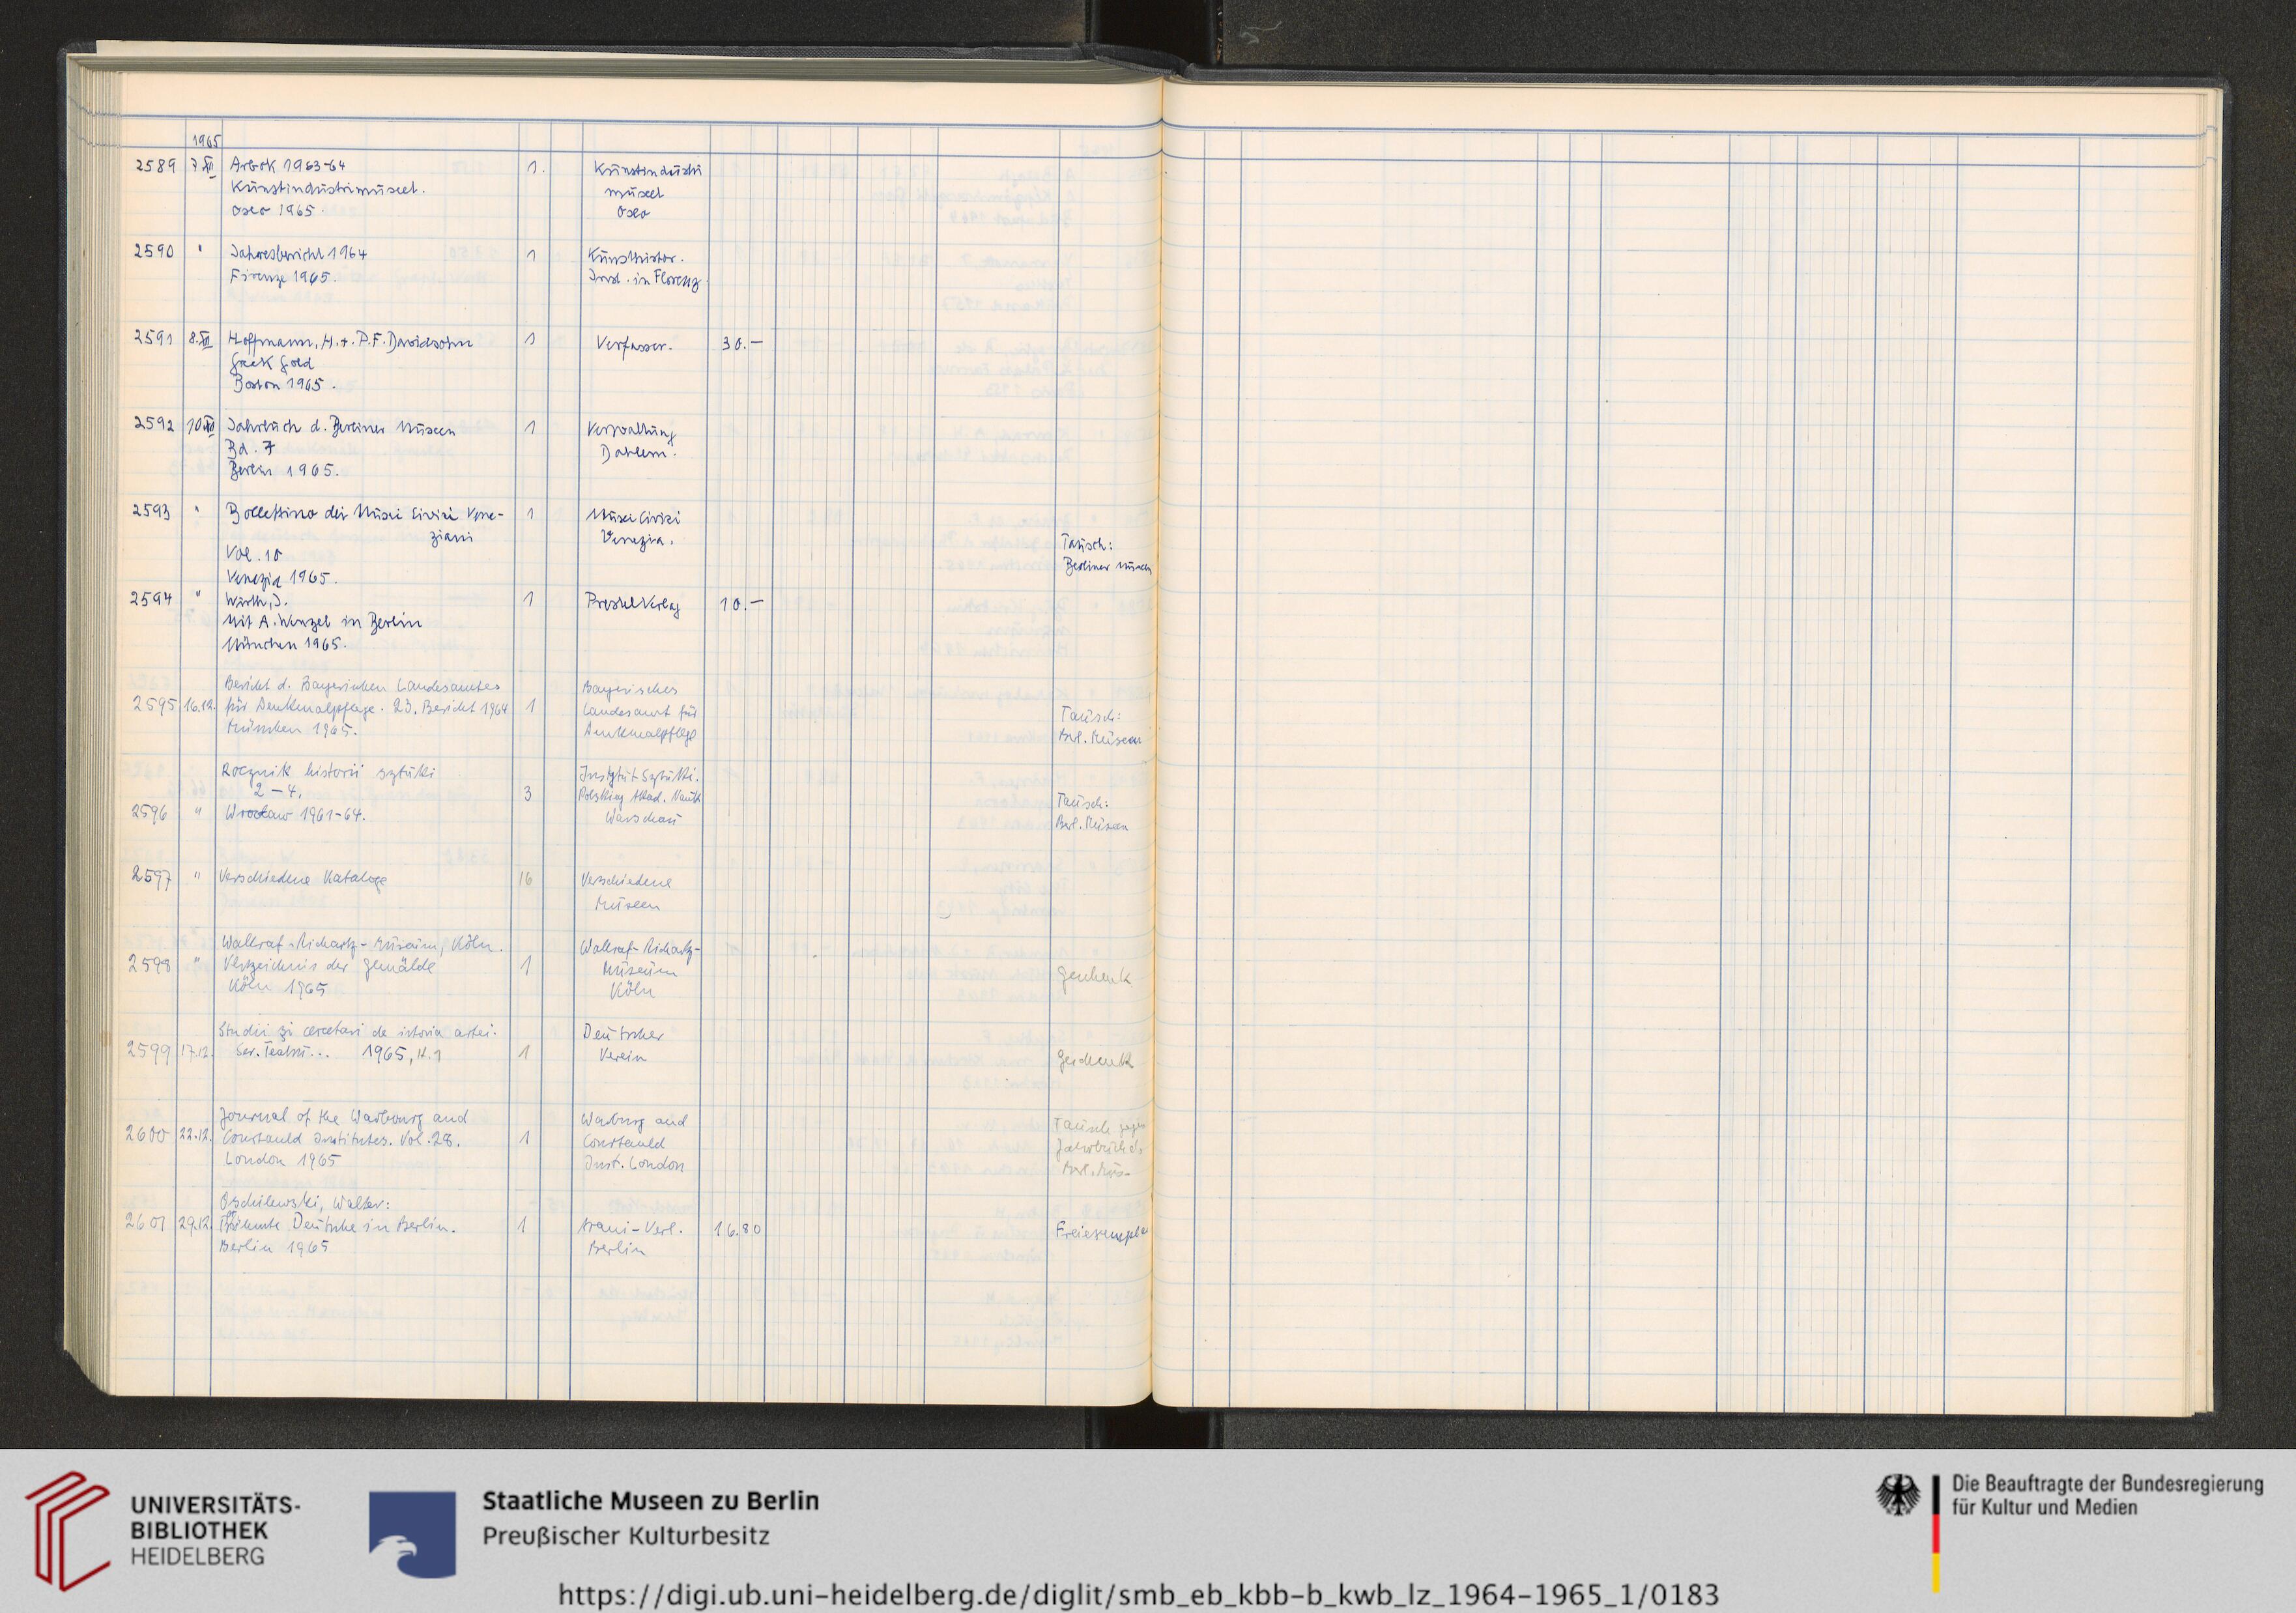 1965
2589 7.XII Arbok 1963-64 1. Kunstindustri
Kunstindustrimuseet. museet
Oslo 1965. Oslo
2590 " Jahresbericht 1964 1 Kunsthistor.
Firenze 1965. Inst. in Florenz.
2591 8.XII Hoffmann, H. + P.F. Davidsohn 1 Verfasser. 30.—
Greek Gold
Boston 1965.
2592 10.XII Jahrbuch d. Berliner Museen 1 Verwaltung
Bd. 7 Dahlem.
Berlin 1965.
2593 " Bollettino dei Musei Civici Vene- 1 Musei Civici
ziani Venezia.
Vol. 10 Tausch:
Venezia 1965. Berliner Museen
2594 " Wirth, I. 1 Prestel Verlag 10.—
Mit A. Menzel in Berlin
München 1965.
Bericht d. Bayerischen Landesamtes Bayerisches
2595 16.12. für Denkmalpflege. 23. Bericht 1964 1 Landesamt für Tausch:
München 1965. Denkmalpflege Berl. Museen
Rocznik historii sztuki Instytut Sztuki.
2-4. 3 Polskiej Akad. Nauk Tausch:
2596 " Wrocław 1961-64. Warschau Berl. Museen
2597 " Verschiedene Kataloge 16 Verschiedene
Museen
Wallraf-Richartz-Museum, Köln. Wallraf-Richartz-
2598 " Verzeichnis der Gemälde 1 Museum Geschenk
Köln 1965 Köln
Studii şi cercetari de istoria artei. Deutscher
2599 17.12. Ser. Teatru... 1965, H. 1 1 Verein Geschenk
Journal of the Warbourg and Warburg and Tausch gegen
2600 22.12. Courtauld Institutes. Vol. 28. 1 Courtauld Jahrbuch d.
London 1965 Inst. London Berl. Mus.
Oschilewski, Walter:
2601 29.12. Berühmte Deutsche in Berlin. 1 Arani-Verl. 16.80 Freiexemplar
Berlin 1965 Berlin
UNIVERSITÄTS-
BIBLIOTHEK
HEIDELBERG
Staatliche Museen zu Berlin
Preußischer Kulturbesitz
Die Beauftragte der Bundesregierung
für Kultur und Medien
https://digi.ub.uni-heidelberg.de/diglit/smb_eb_kbb-b_kwb_lz_1964-1965_1/0183